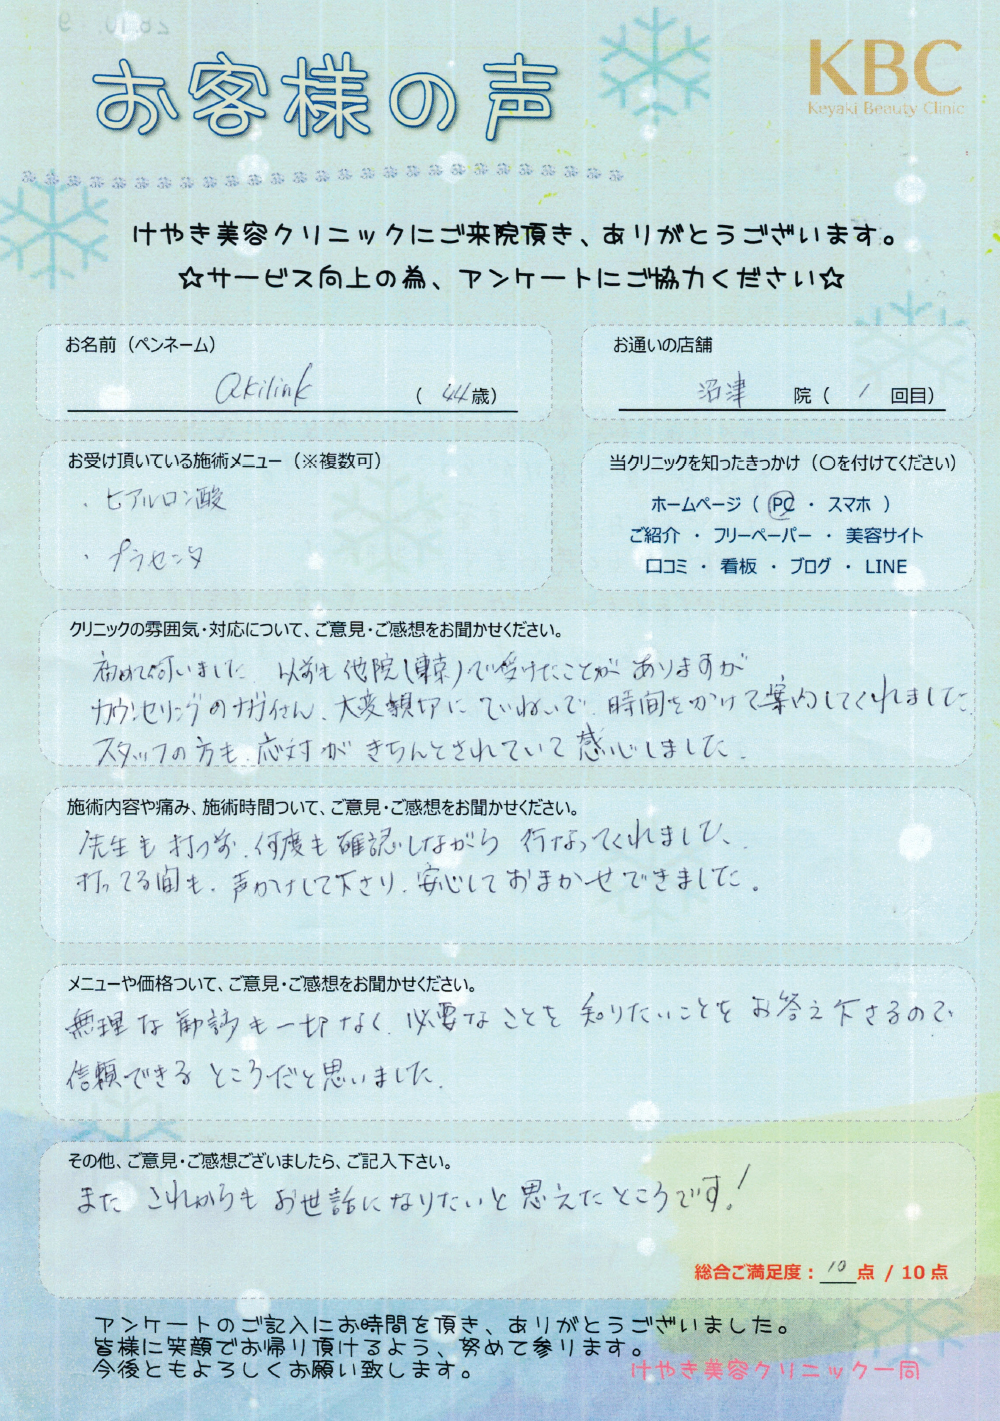 お客様の声
KBC
Keyaki Beauty Clinic
けやき美容クリニックにご来院頂き、ありがとうございます。
☆サービス向上の為、アンケートにご協力ください☆
お名前（ペンネーム）
akilink （ 44 歳）
お通いの店舗
沼津 院（ 1 回目）
お受け頂いている施術メニュー（※複数可）
・ヒアルロン酸
・プラセンタ
当クリニックを知ったきっかけ（〇を付けてください）
ホームページ（ PC ・ スマホ ）
ご紹介 ・ フリーペーパー ・ 美容サイト
口コミ ・ 看板 ・ ブログ ・ LINE
クリニックの雰囲気・対応について、ご意見・ご感想をお聞かせください。
初めて伺いました 以前も他院(東京)で受けたことがありますが
カウンセリングの さん、大変親切に ていねいで、時間をかけて案内してくれました
スタッフの方も、応対がきちんとされていて感心しました。
施術内容や痛み、施術時間ついて、ご意見・ご感想をお聞かせください。
先生も打つ前、何度も確認しながら行なってくれまして、
打ってる間も、声かけして下さり、安心しておまかせできました。
メニューや価格ついて、ご意見・ご感想をお聞かせください。
無理な勧誘も一切なく、必要なことを知りたいことをお答え下さるので
信頼できるところだと思いました。
その他、ご意見・ご感想ございましたら、ご記入下さい。
また これからもお世話になりたいと思えたところです！
総合ご満足度：10点 / 10点
アンケートのご記入にお時間を頂き、ありがとうございました。
皆様に笑顔でお帰り頂けるよう、努めて参ります。
今後ともよろしくお願い致します。
けやき美容クリニック一同